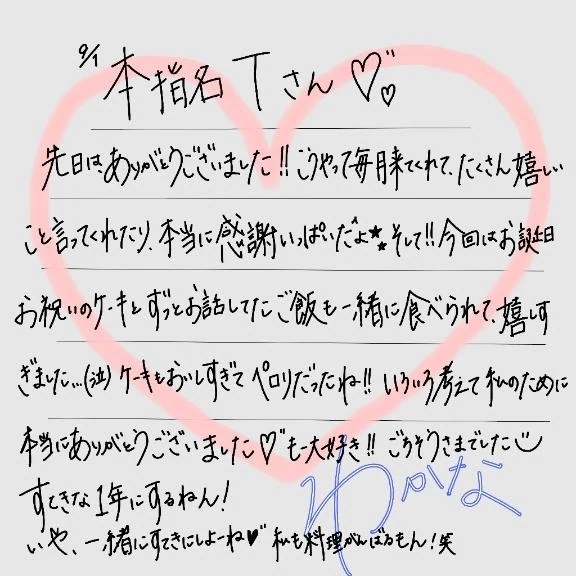 9/1
本指名Tさん♡♡
先日は、ありがとうございました!!こうやって毎月来てくれて、たくさん嬉しい
こと言ってくれたり、本当に感謝いっぱいだよ★★そして!!今回はお誕生日
お祝いのケーキとずっとお話してたご飯も一緒に食べられて、嬉しす
ぎました…(泣)ケーキもおいしすぎてペロリだったね!!いろいろ考えて私のために
本当にありがとうございました♡も一大好き!!ごちそうさまでした
すてきな1年にするねん!
いや、一緒にすてきにしよーね♥私も料理がんばるもん!笑
わかな